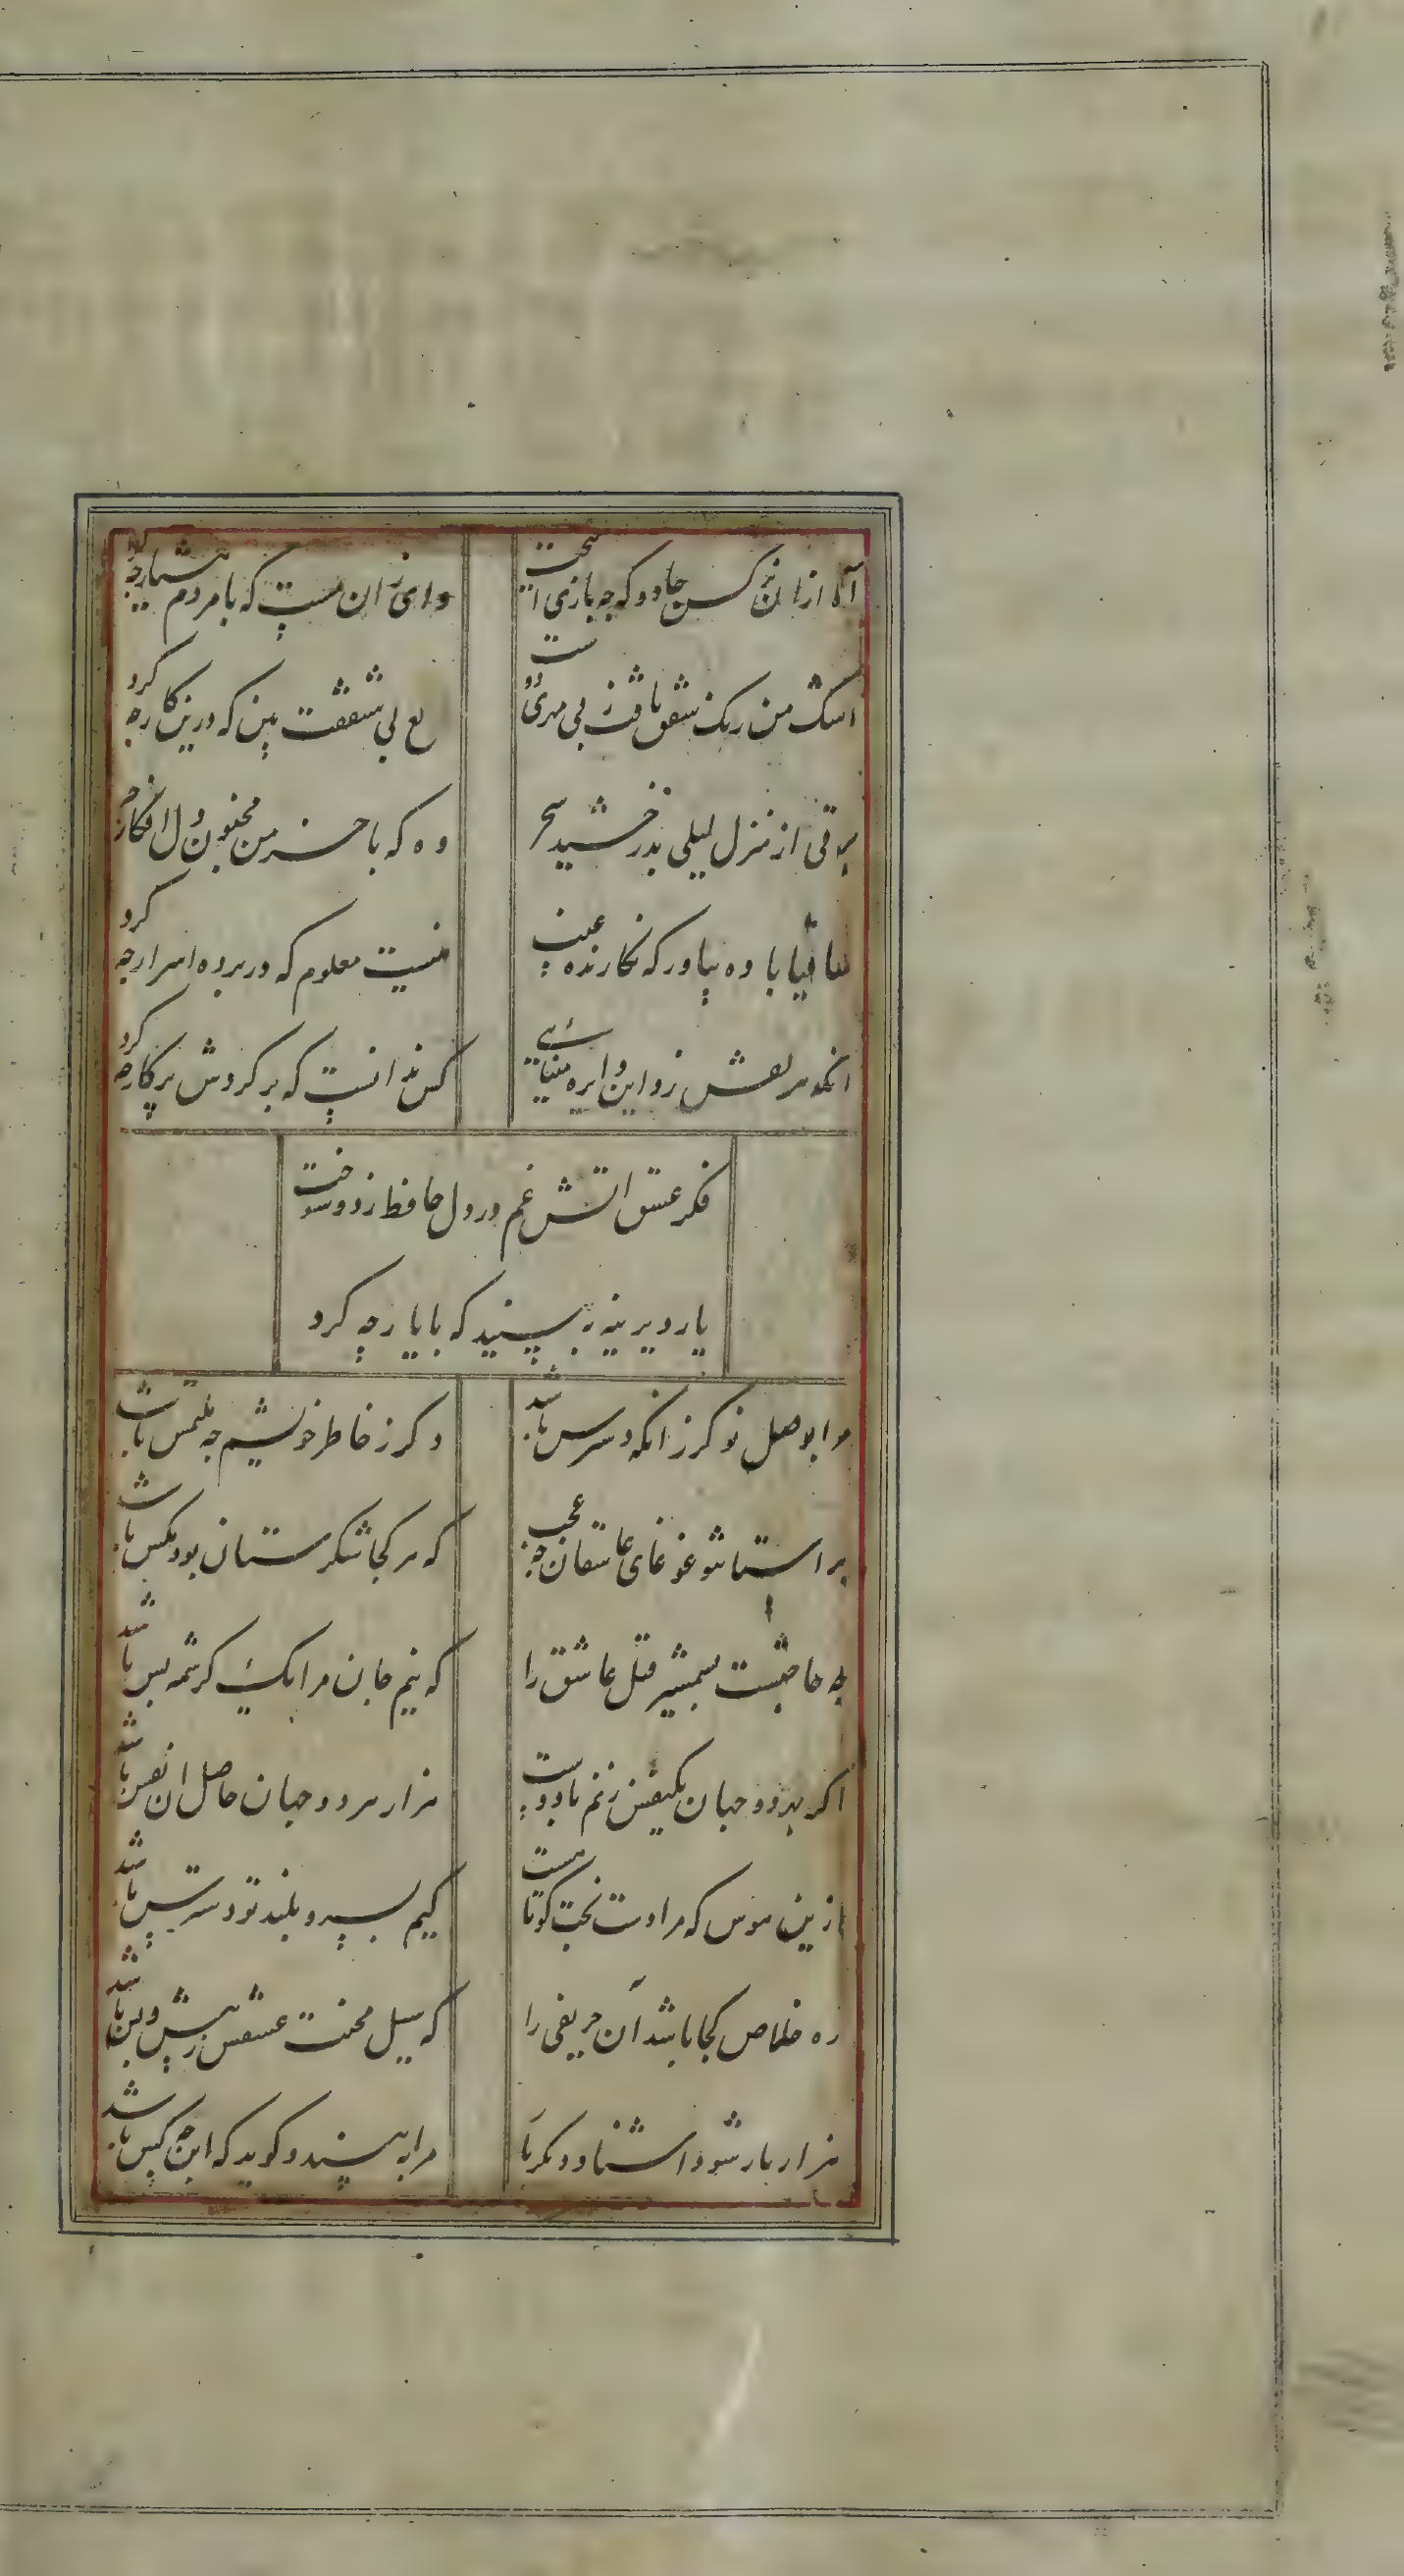 آه ازان نرکس جادو که چه بازی انکیخت
وای زان مست که با مردم هشیار چه کرد
اشک من رنک شفق یافت ز بی مهری دوست
طالع بی شفقت بین که درین کار چه کرد
برقی از منزل لیلی بدرخشید سحر
وه که با خرمن مجنون دل افکار چه کرد
ساقیا باده بیاور که نکارنده غیب
نیست معلوم که در پرده اسرار چه کرد
انکه بر نقش زد این دایره مینایی
کس ندانست که بر کردش پرکار چه کرد
فکر عشق اتش غم در دل حافظ زد و سوخت
یار دیرینه به بینید که با یار چه کرد
مرا بوصل تو کر زانکه دسترس باشد
دکر ز خاطر خویشم چه ملتمس باشد
بر استان تو غوغای عاشقان چه عجب
که هر کجا شکرستان بود مکس باشد
چه حاجتست بشمشیر قتل عاشق را
که نیم جان مرا یک کرشمه بس باشد
اکر بهر دو جهان یکنفس زنم با دوست
هزار هر دو جهان حاصل ان نفس باشد
ازین هوس که مرا دست بخت کوتاهست
کیم بسرو بلند تو دسترس باشد
ره خلاص کجا باشد آن حریفی را
که سیل محنت عشقش ز پیش و پس باشد
هزار بار شود اشنا و دکر بار
مرا به بیند و کوید که این چه کس باشد